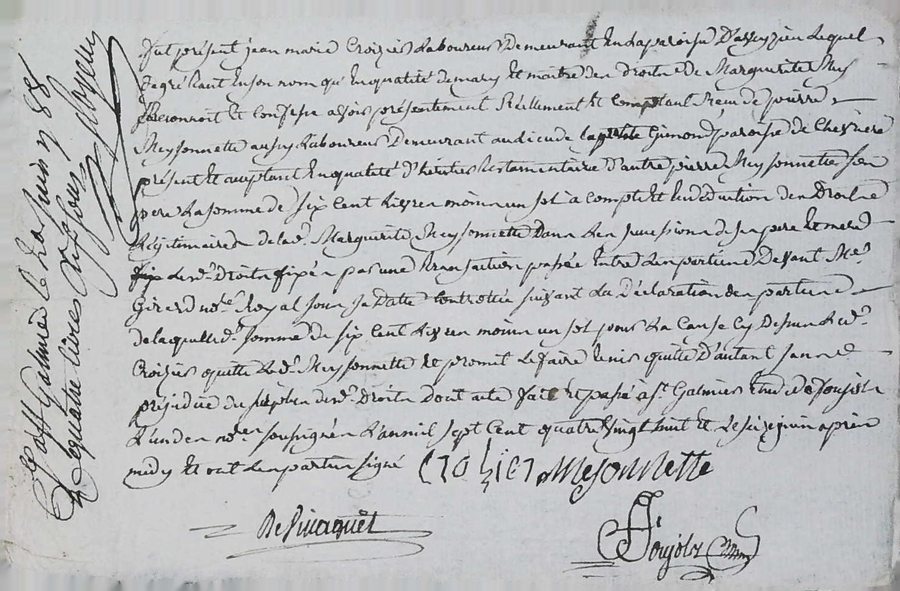 fut présent jean marie Croizier Laboureur Demeurant En La paroisse D'aveyzieu Lequel
de gré tant En son nom qu'En qualité de mary Et maître des Droits De Marguerite Mey
Reconnoit Et Confesse avoir présentement Réellement Et Comptant Receu de pierre
Meyssonnette aussy Laboureur Demeurant au Lieu de la Gimond paroisse de Chevriere
présent Et acceptant En qualité d'héritier testamentaire d'autre pierre Meyssonnette son
pere La somme de six Cent Livres moins un sol à Compte Et En déduction des Droits
Légitimaires de lad. Marguerite Meyssonnette Dans Les successions de ses pere Et mere
Lesd. Droits fixés par une transaction passée Entre Les parties Devant Me
Girerd no.re Royal sous sa Datte Controllée suivant La Déclaration des parties
de laquelle d. somme de six Cent Livres moins un sol pour La Cause Cy Dessus Led.
Croizier quitte Led. Meyssonnette Et promet Le faire tenir quitte D'autant sans
préjudice du surplus desd. Droits Dont acte fait Et passé à St. Galmier Etude de Soujols
L'un des no.res soussignés L'an mil sept Cent quatre vingt huit Et Le six juin après
midy Et ont Les parties signé Crozier Mesonnette
Soujols
C. à St Galmier le juin 88
R quatre livres dix sous